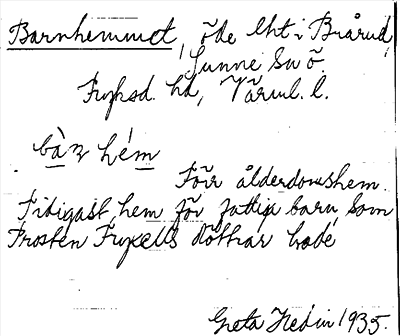 Barnhemmet, öde lht i Brårud,
Sunne sn ö.
Fryksd. hd, Värml. l.
bà̱ṉ hém̱
Förr ålderdomshem.
Tidigast hem för fattiga barn, som
Prosten Fryxells döttrar hade
Greta Hedin 1935.